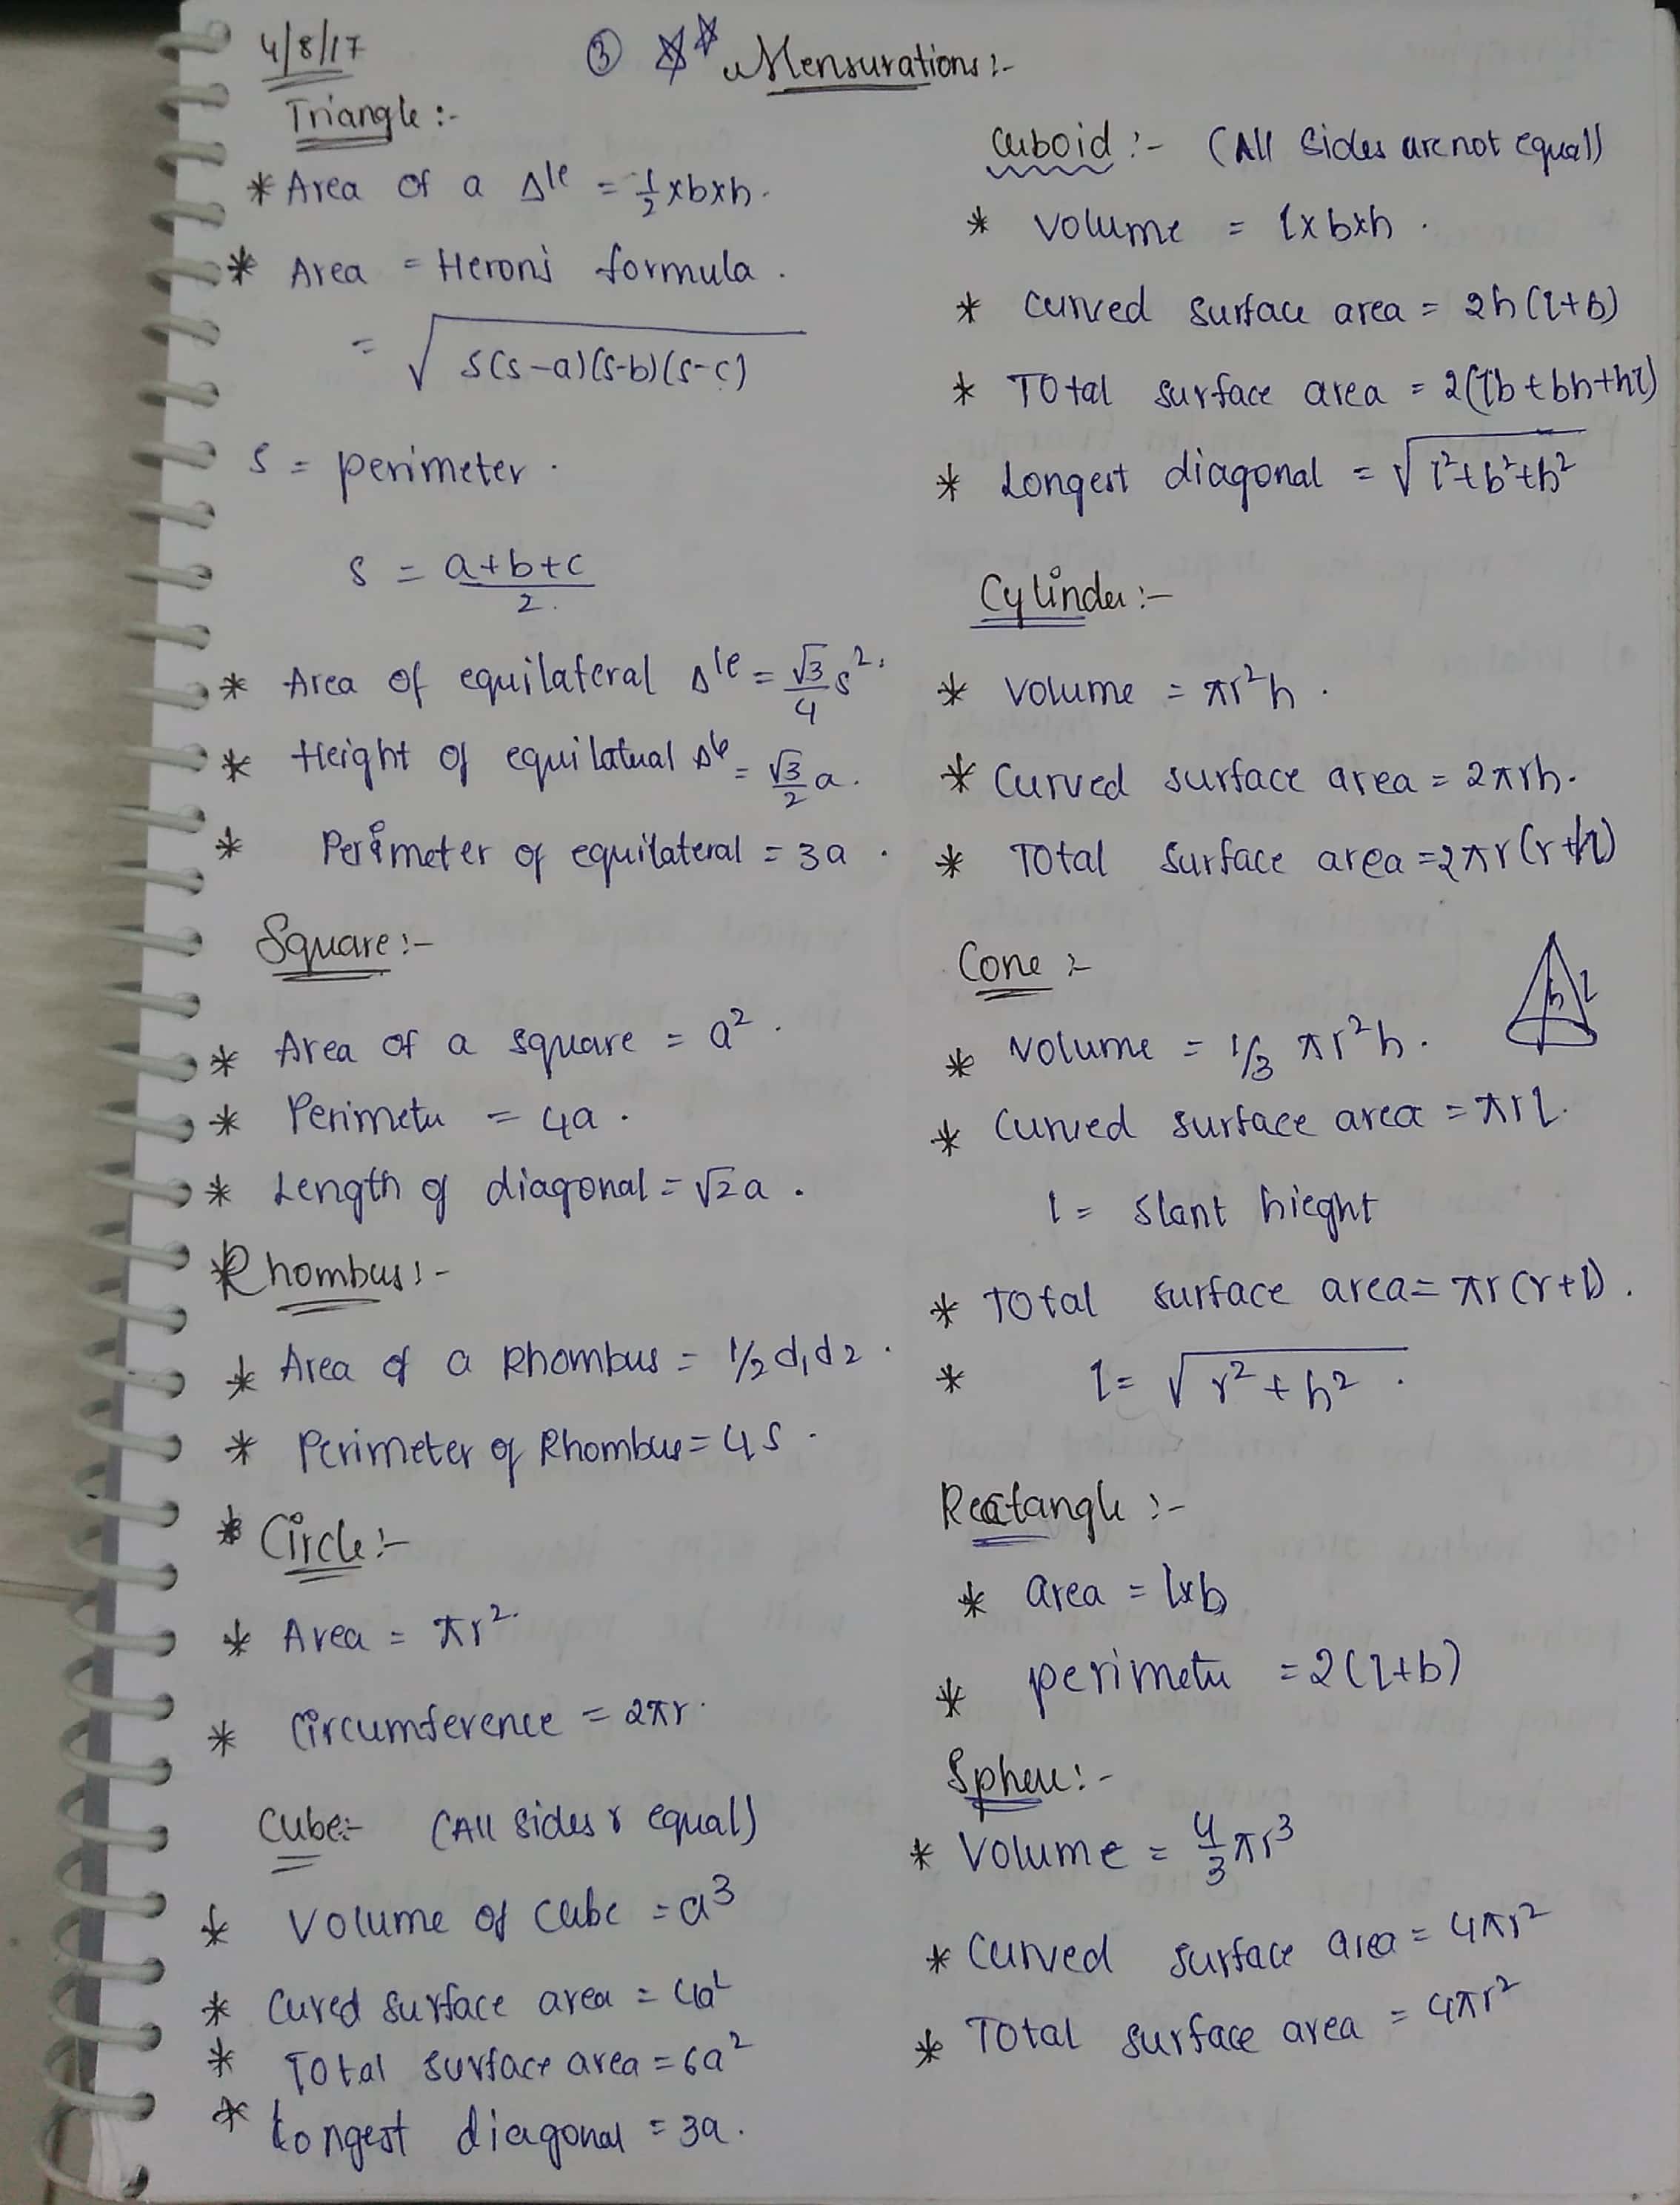 4/8/17
③ ☆☆ Mensurations :-
Triangle :-
* Area of a Δle = 1/2 xbxh.
* Area = Herons formula .
= √s(s-a)(s-b)(s-c)
s = perimeter .
s = a+b+c/2.
* Area of equilateral Δle = √3/4 s².
* Height of equilateral Δle = √3/2 a.
* Perimeter of equilateral = 3a .
Square :-
* Area of a square = a² .
* Perimeter = 4a .
* Length of diagonal = √2a .
* Rhombus :-
* Area of a Rhombus = 1/2 d1d2 .
* Perimeter of Rhombus = 4s .
* Circle :-
* Area = πr².
* Circumference = 2πr.
Cube:- (All sides r equal)
* Volume of cube = a³
* Cured surface area = 4a²
* Total surface area = 6a²
* Longest diagonal = 3a.
Cuboid :- (All Sides are not equal)
* Volume = lxbxh .
* Curved surface area = 2h(l+b)
* Total surface area = 2(lb+bh+hl)
* Longest diagonal = √l²+b²+h²
Cylinder :-
* Volume = πr²h .
* Curved surface area = 2πrh.
* Total surface area = 2πr(r+h)
Cone :-
h l
* Volume = 1/3 πr²h .
* Curved surface area = πrl.
l = slant hieght
* Total surface area = πr(r+l) .
* l = √r²+h² .
Rectangle :-
* area = lxb
* perimeter = 2(l+b)
Sphere :-
* Volume = 4/3 πr³
* Curved surface area = 4πr²
* Total surface area = 4πr²